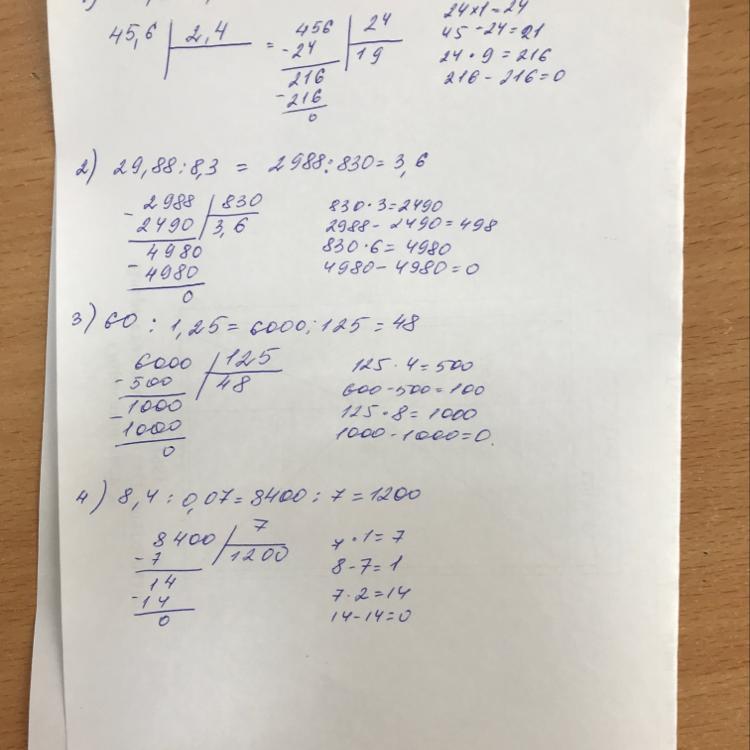 45,6 | 2,4 = 456 | 24
- 24 | 19
216
- 216
0
24 × 1 = 24
45 - 24 = 21
24 · 9 = 216
216 - 216 = 0
2) 29,88 : 8,3 = 2988 : 830 = 3,6
- 2988 | 830
2490 | 3,6
- 4980
4980
0
830 · 3 = 2490
2988 - 2490 = 498
830 · 6 = 4980
4980 - 4980 = 0
3) 60 : 1,25 = 6000 : 125 = 48
6000 | 125
- 500 | 48
- 1000
1000
0
125 · 4 = 500
600 - 500 = 100
125 · 8 = 1000
1000 - 1000 = 0.
4) 8,4 : 0,07 = 8400 : 7 = 1200
8400 | 7
- 7 | 1200
14
- 14
0
7 · 1 = 7
8 - 7 = 1
7 · 2 = 14
14 - 14 = 0